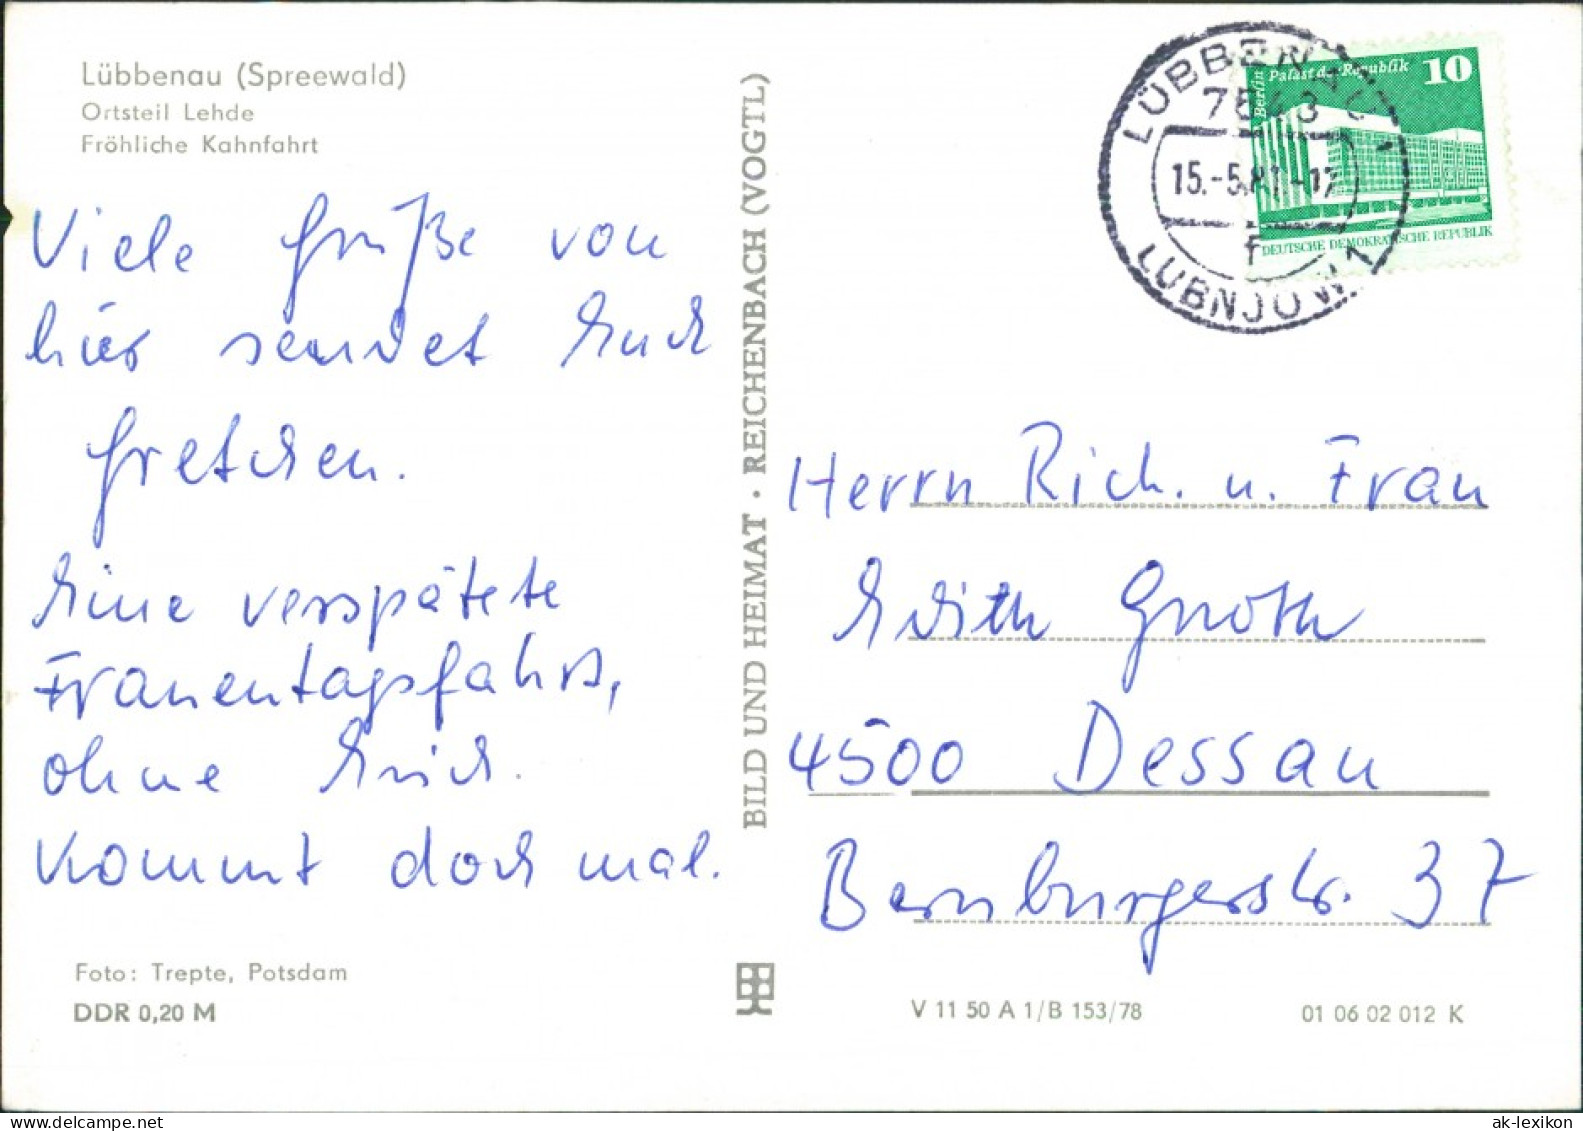 Lübbenau (Spreewald)
Ortsteil Lehde
Fröhliche Kahnfahrt
Viele Grüße von
hier sendet Euch
Gretchen.
Eine verspätete
Frauentagsfahrt,
ohne Erich.
Kommt doch mal.
Foto: Trepte, Potsdam
DDR 0,20 M
BILD UND HEIMAT · REICHENBACH (VOGTL)
LÜBBENAU 1
7543
15.-5.81.-17
f
LUBNJOW 1
Berlin
Palast der Republik
10
DEUTSCHE DEMOKRATISCHE REPUBLIK
Herrn Rich. u. Frau
Edith Gnoth
4500 Dessau
Bernburgerstr. 37
V 11 50 A 1/B 153/78
01 06 02 012 K
ak-lexikon